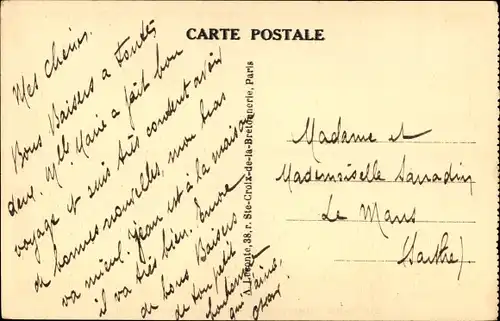 CARTE POSTALE
Mes chéries.
Bons Baisers a toutes
deux. Mlle Marie a fait bon
voyage et suis très content avoir
de bonnes nouvelles, mon bras
va mieux. Jean est à la maison
il va très bien. Encore
de bons Baisers
de ton petit
qui t'aime,
A. Leconte, 38, r. Ste-Croix-de-la-Bretonnerie, Paris
Madame et
Mademoiselle
Le Mans
(Sarthe)